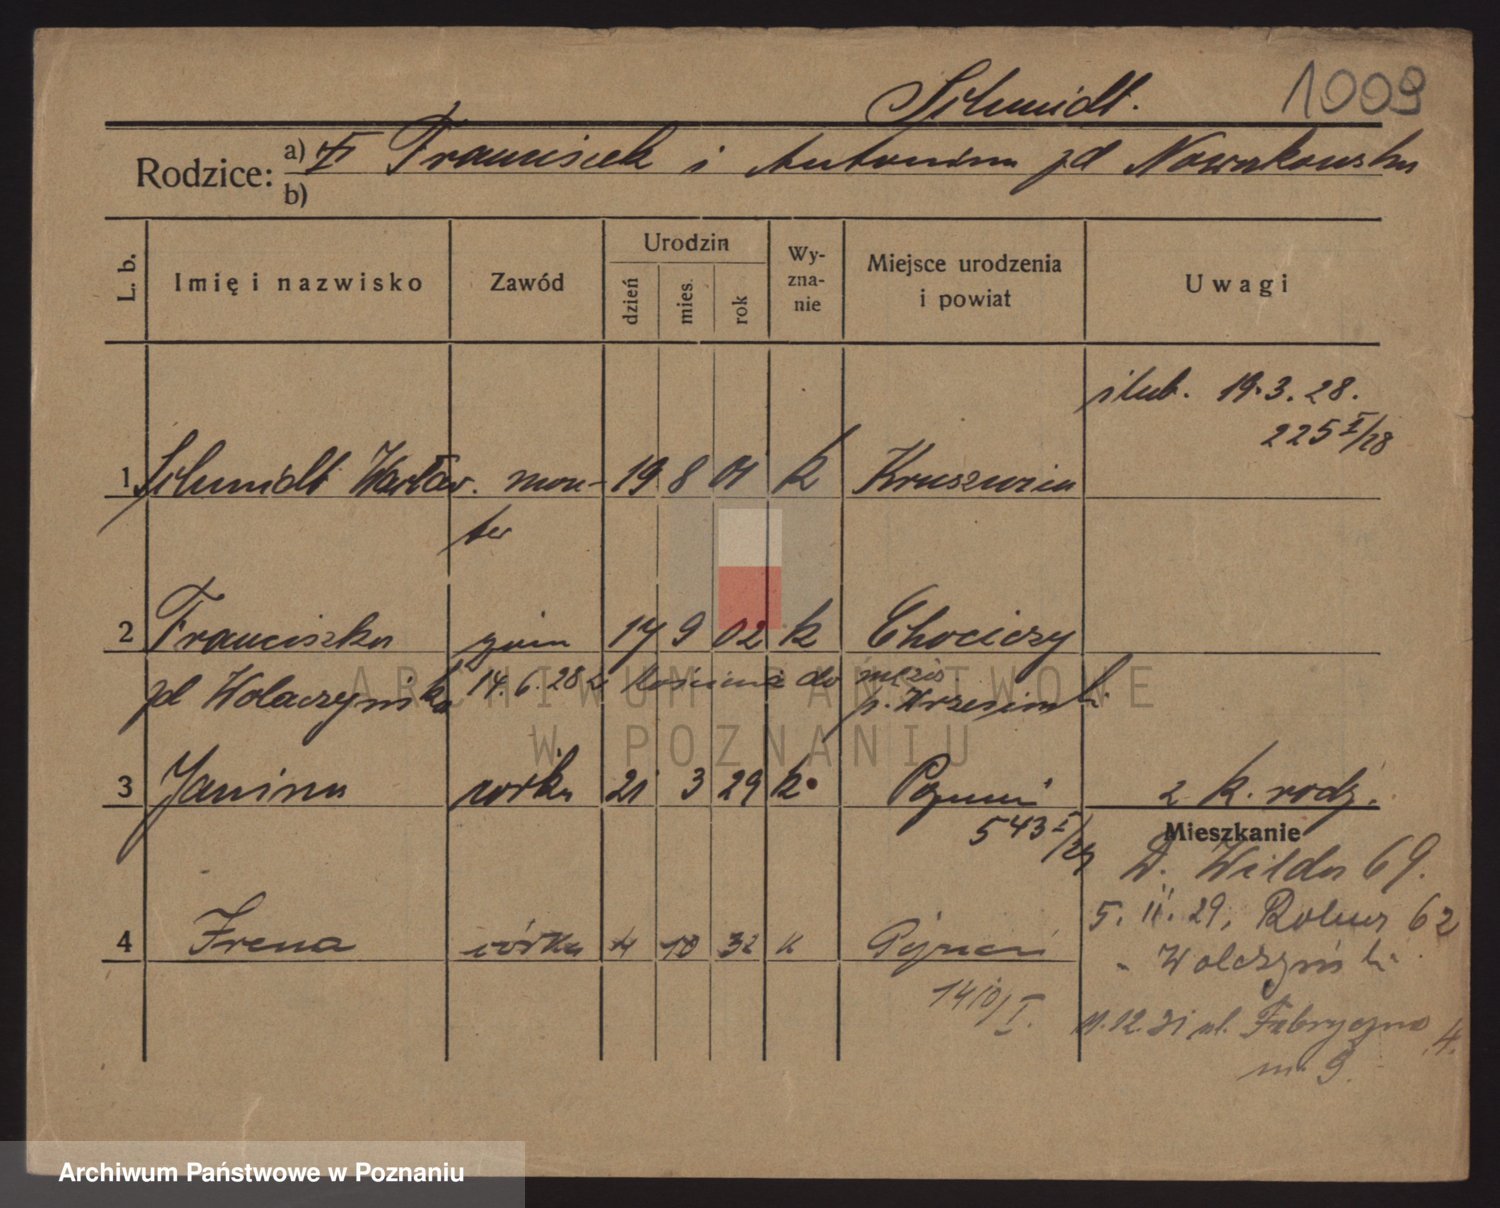 Schmidt.
1009
Rodzice:
a) Franciszek i Antonina zd Nowakowska
b)
L. b.
Imię i nazwisko
Zawód
Urodzin
dzień
mies.
rok
Wy-
zna-
nie
Miejsce urodzenia
i powiat
Uwagi
ślub. 19.3.28.
225 I/28
1 Schmidt Wacław. mon- 19 8 01 k Kruszwica
ter
2 Franciszka żona 17 9 02 k Chociczy
zd Wolaczyńska 14.6.28 z Kościana do męża
p. Wrzesiński
3 Janina córka 21 3 29 k. Poznań z k. rodz.
543 I/29
Mieszkanie
D. Wilda 69.
5. II. 29, Rolna 62
4 Irena córka 4 10 32 k Poznań
1410/I.
11.12.31 ul. Fabryczna 4.
m. 9.
ARCHIWUM PAŃSTWOWE
W POZNANIU
Archiwum Państwowe w Poznaniu